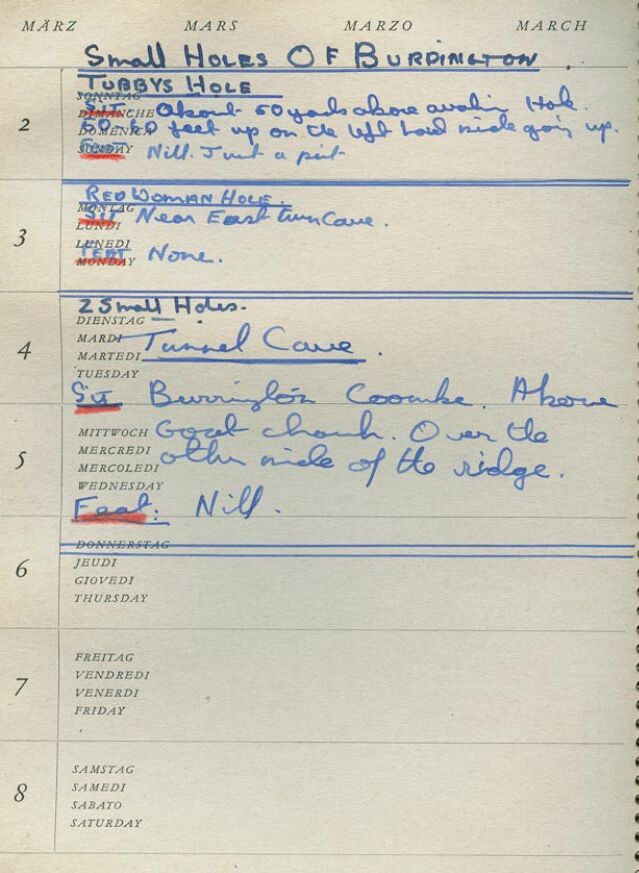 MÄRZ MARS MARZO MARCH
Small Holes Of Burdington.
TUBBYS HOLE
SONNTAG
Sit. About 50 yards above Hole.
DIMANCHE
2
50-60 feet up on the left hand side goin up.
DOMENICA
Feat Nill. Just a pit
SUNDAY
RED WOMAN HOLE.
MONTAG
Sit Near East Twin Cave.
LUNDI
3
LUNEDI
FEAT None.
MONDAY
2 Small Holes.
DIENSTAG
MARDI Tunnel Cave.
4
MARTEDI
TUESDAY
Sit Burrington Coombe. Above
MITTWOCH Goat church. Over the
5
MERCREDI
MERCOLEDI other side of the ridge.
WEDNESDAY
Feat: Nill.
DONNERSTAG
6
JEUDI
GIOVEDI
THURSDAY
FREITAG
7
VENDREDI
VENERDI
FRIDAY
SAMSTAG
8
SAMEDI
SABATO
SATURDAY